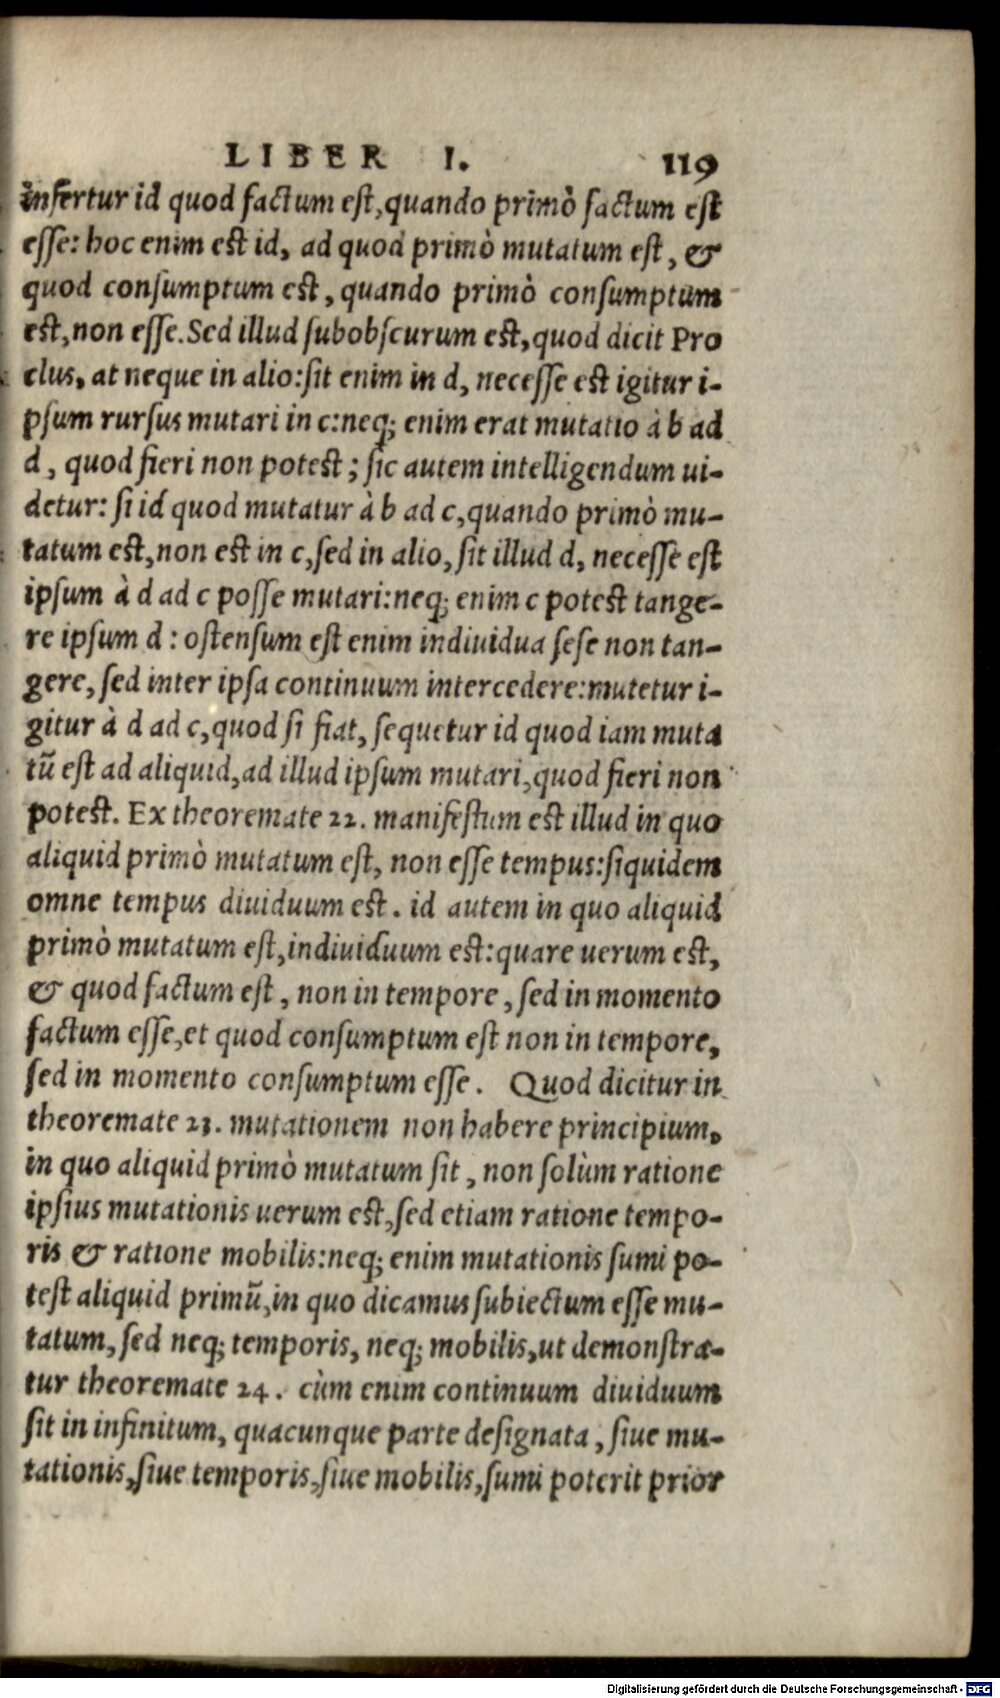 LIBER I. 119
infertur id quod factum est, quando primò factum est
esse: hoc enim est id, ad quod primò mutatum est, &
quod consumptum est, quando primò consumptum
est, non esse. Sed illud subobscurum est, quod dicit Pro
clus, at neque in alio: sit enim in d, necesse est igitur i-
psum rursus mutari in c: neq; enim erat mutatio à b ad
d, quod fieri non potest; sic autem intelligendum ui-
detur: si id quod mutatur à b ad c, quando primò mu-
tatum est, non est in c, sed in alio, sit illud d, necesse est
ipsum à d ad c posse mutari: neq; enim c potest tange-
re ipsum d: ostensum est enim indiuidua sese non tan-
gere, sed inter ipsa continuum intercedere: mutetur i-
gitur à d ad c, quod si fiat, sequetur id quod iam muta
tũ est ad aliquid, ad illud ipsum mutari, quod fieri non
potest. Ex theoremate 22. manifestum est illud in quo
aliquid primò mutatum est, non esse tempus: siquidem
omne tempus diuiduum est. id autem in quo aliquid
primò mutatum est, indiuiduum est: quare uerum est,
& quod factum est, non in tempore, sed in momento
factum esse, et quod consumptum est non in tempore,
sed in momento consumptum esse. Quod dicitur in
theoremate 23. mutationem non habere principium,
in quo aliquid primò mutatum sit, non solùm ratione
ipsius mutationis uerum est, sed etiam ratione tempo-
ris & ratione mobilis: neq; enim mutationis sumi po-
test aliquid primũ, in quo dicamus subiectum esse mu-
tatum, sed neq; temporis, neq; mobilis, ut demonstra-
tur theoremate 24. cùm enim continuum diuiduum
sit in infinitum, quacunque parte designata, siue mu-
tationis, siue temporis, siue mobilis, sumi poterit prior
Digitalisierung gefördert durch die Deutsche Forschungsgemeinschaft - DFG